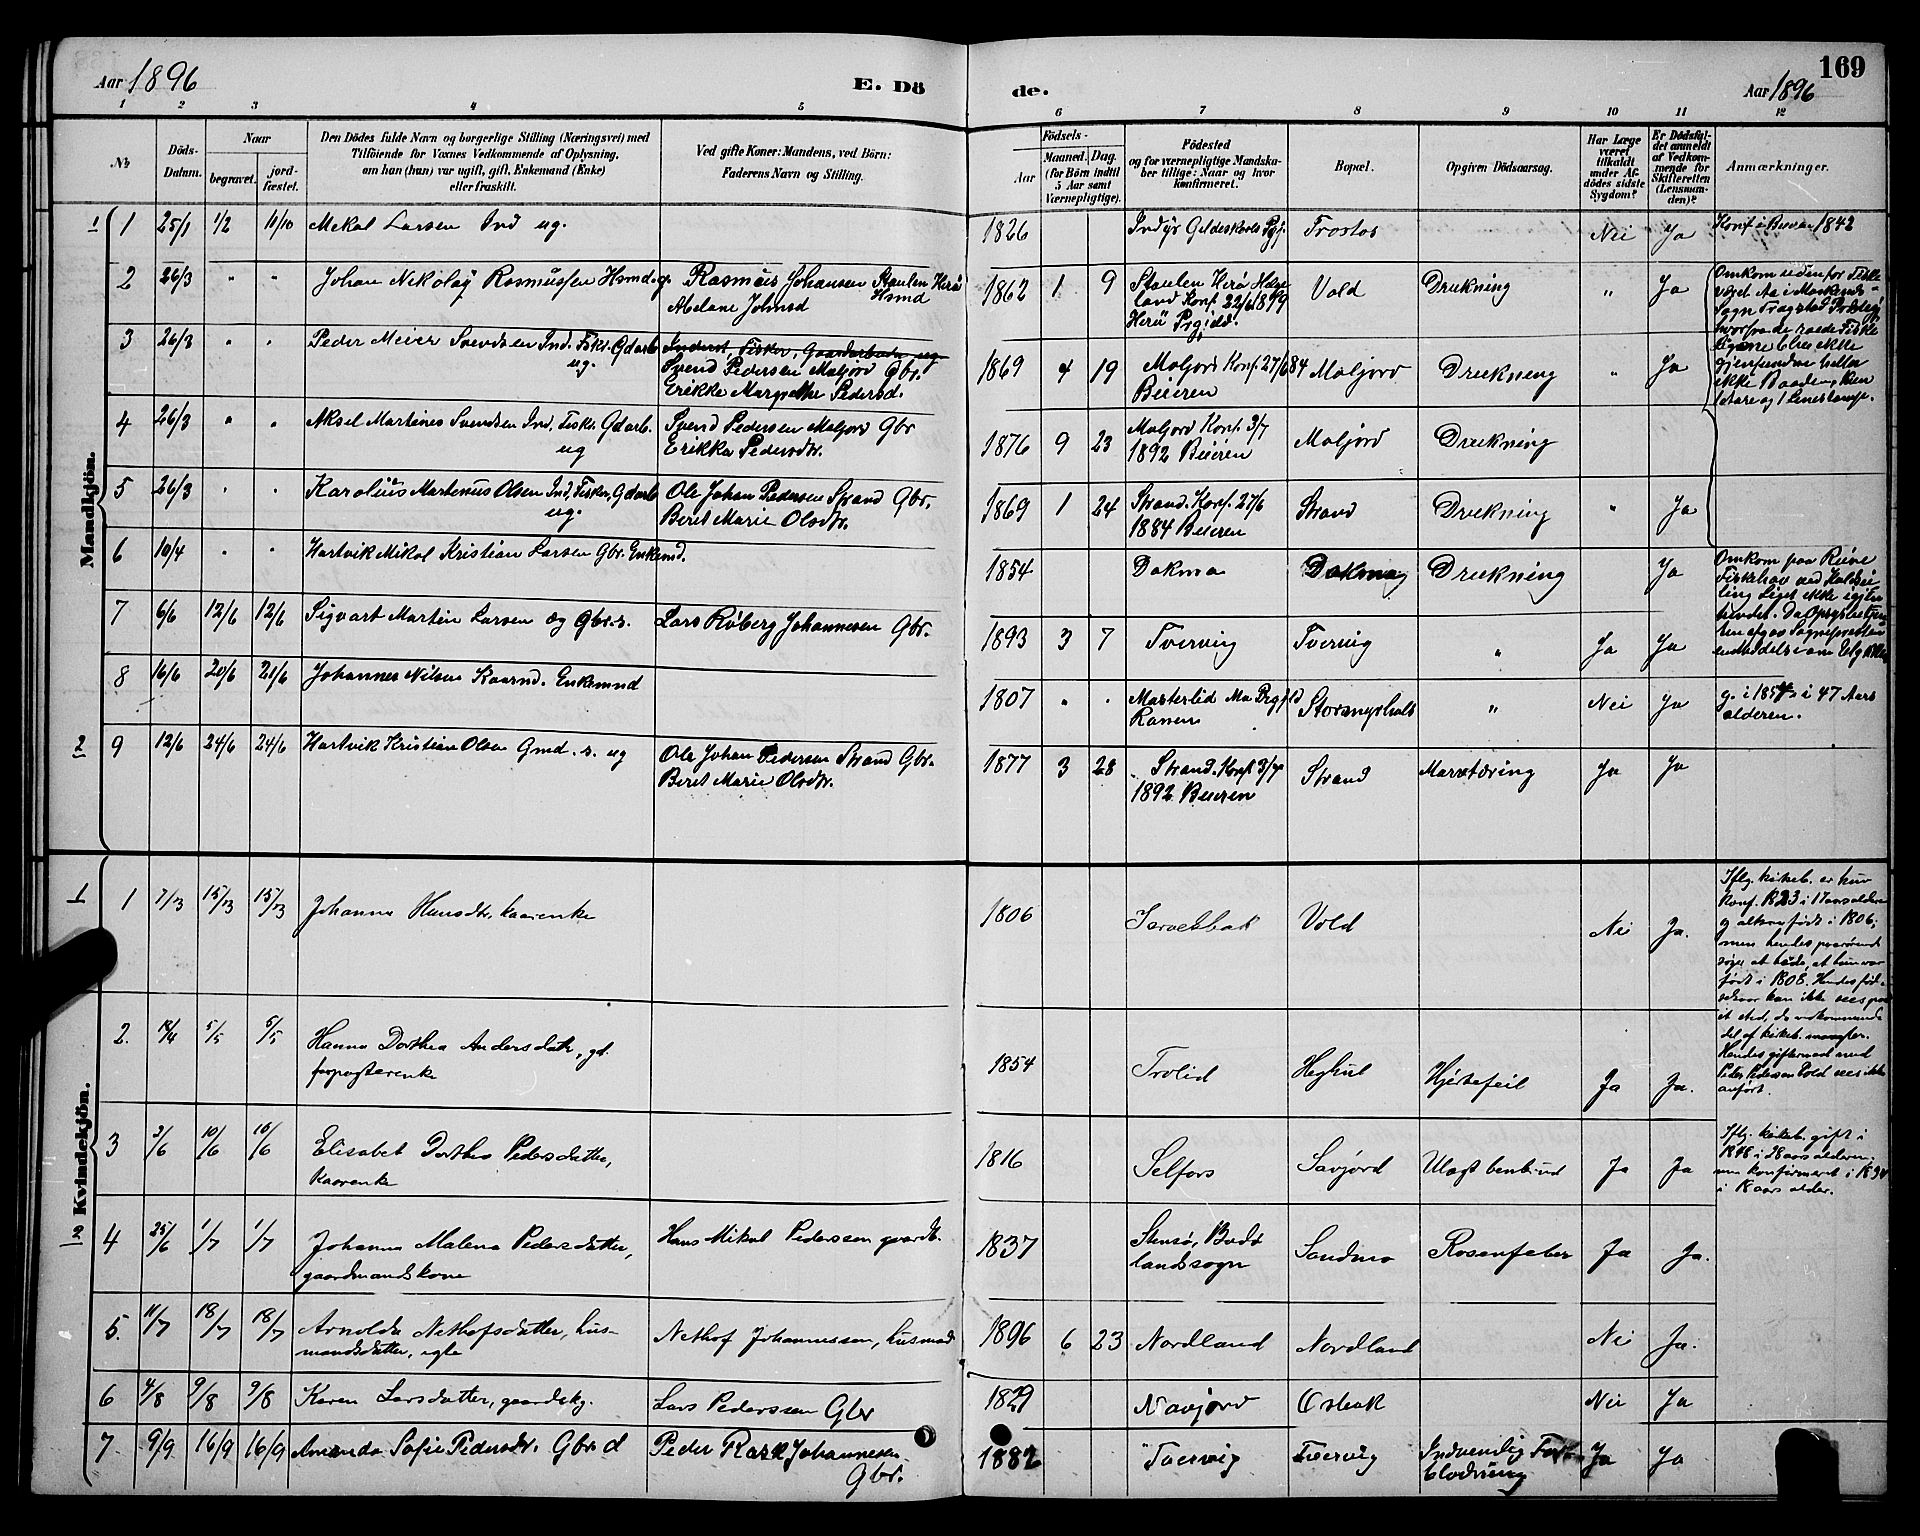 169
Aar 1896
E. Dö
de.
Aar 1896
1 2 3 4 5 6 7 8 9 10 11 12
№
Döds-Datum.
Naar
begravet.
jord-fæstet.
Den Dödes fulde Navn og borgerlige Stilling (Næringsvei) med
Tilföiende for Voxnes Vedkommende af Oplysning,
om han (hun) var ugift, gift, Enkemand (Enke)
eller fraskilt.
Ved gifte Koner: Mandens, ved Börn:
Faderens Navn og Stilling.
Födsels-
Aar
Maaned. Dag.
(for Börn indtil
5 Aar samt
Værnepligtige).
Födested
og for værnepligtige Mandska-
ber tillige: Naar og hvor
konfirmeret.
Bopæl.
Opgiven Dödsaarsag.
Har Læge
været
tilkaldt
under Af-
dödes sidste
Sygdom?
Er Dödsfal-
det anmeldt
af Vedkom-
mende for
Skifteretten
(Lensman-
den)?
Anmærkninger.
Mandkjön.
1
1 25/1 1/2 11/10 Mekal Larsen Ind ug. 1826 Indyr Gildeskaals Pgj. Trostos Nei Ja Konf. i Beieren 1842
2 26/3 " " Johan Nikolay Rasmussen Hsmd. g. Rasmus Johansen Staulen Herö
Hsmd
Abelone Johnsd 1862 1 9 Staulen Herö Helge
land Konf. 22/6 1879
Herö Prgjld. Vold Drukning " Ja
Omkom udenfor Fiske
været Aa i
Sogn Prstegj
hvorfra de roede Fiske
Ligene blev ikke
gjenfundne heller
ikke Baaden, kun
1 Aare og 1
3 26/3 Peder Meier Svendsen Ind. Fiskr. Gdarb
ug. Inderst, Fisker, Gaardarbeider ug
Svend Pedersen Moljord Gbr.
Erikke Margrethe Pedersd. 1869 4 19 Moljord Konf. 27/6 84
Beieren Moljord Drukning " Ja
4 26/3 " " Aksel Martines Svendsen Ind. Fiskr. Gdarb.
ug Svend Pedersen Moljord Gbr
Erikka Pedersdtr. 1876 9 23 Moljord Konf. 3/7
1892 Beieren Moljord Drukning
5 26/3 " " Karolius Martenus Olsen Ind, Fiskr, Gdarb
ug. Ole Johan Pedersen Strand Gbr.
Beret Marie Olsdtr. 1869 1 24 Strand. Konf. 27/6
1884 Beieren Strand Drukning " Ja
6 10/4 " " Hartvik Mikal Kristian Larsen Gbr. Enkemd. 1854 Dokmo Dokmo Drukning Ja
Omkom paa Reine
Fiskehav ved Kuldsei
ling Liget ikke igjen
fundet.
7 6/6 12/6 12/6 Sigvart Martin Larsen æg Gbr. s. Lars Röberg Johannesen Gbr. 1893 3 7 Tvervig Tvervig " Ja Ja
8 16/6 20/6 21/6 Johannes Nilsen Kaarmd. Enkemnd 1807 " " Masterlid Mo Prgjld
Ranen Storemyrholt " Nei Ja g. i 1854 i 47 Aars
alderen.
2
9 12/6 24/6 24/6 Hartvik Kristian Olsen Gmd. s. ug Ole Johan Pedersen Strand Gbr.
Beret Marie Olsdtr. 1877 3 28 Strand. Konf. 3/7
1892 Beieren Strand Marvtæring Ja Ja
Kvindekjön.
1
1 7/13 15/13 15/13 Johanna Hansdtr. kaarenke 1806 Vold Nei Ja.
Iflg. kirkeb. er hun
konf. 1823 i 17 aarsalderen
og altsaa født i 1806,
men hendes paarørende
siger at vide, at hun var
født i 1808. Hendes fød-
selsaar kan ikke sees paa
et sted, da vedkommende
del af kirkeb. mangler.
Hendes giftermaal med
Peder Pedersen Vold sees ikke
anført.
2. 18/4 5/5 5/5 Hanna Dorthea Andersdatr, gd.
forpagterenke 1854 Trolid Heghul Hjertefeil Ja Ja.
3 3/6 10/6 10/6 Elisabet Dorthea Pedersdatter,
kaarenke 1816 Selfors Savjord Ulægt benbrud Ja Ja
Iflg. kirkeb. gift i
1848 i 28 aars alderen,
men konfirmeret i 1834
i 18 aars alder.
1/2
4 25/6 1/7 1/7 Johanna Malena Pedersdatter,
gaardmandskone Hans Mikal Pederssen gaardb. 1837 Stensø, Bodø
landssogn Sandmo Rosenfeber Ja Ja.
5. 11/7 18/7 18/7 Arnolda Nethofsdatter, hus-
mandsdatter, egte Nethof Johannessen, husmand 1896 6 23 Nordland Nordland Nei Ja.
6 4/8 9/8 9/8 Karen Larsdatter, gaardskg. Lars Pederssen Gbr 1829 Navjord Osbak Nei Ja
7. 9/9 16/9 16/9 Amanda Sofie Pedersdtr. Gbr. d Peder Rask Johannesen
Gbr. 1882 Tvervig Tvervig Indvendig Forb
lødning Ja Ja